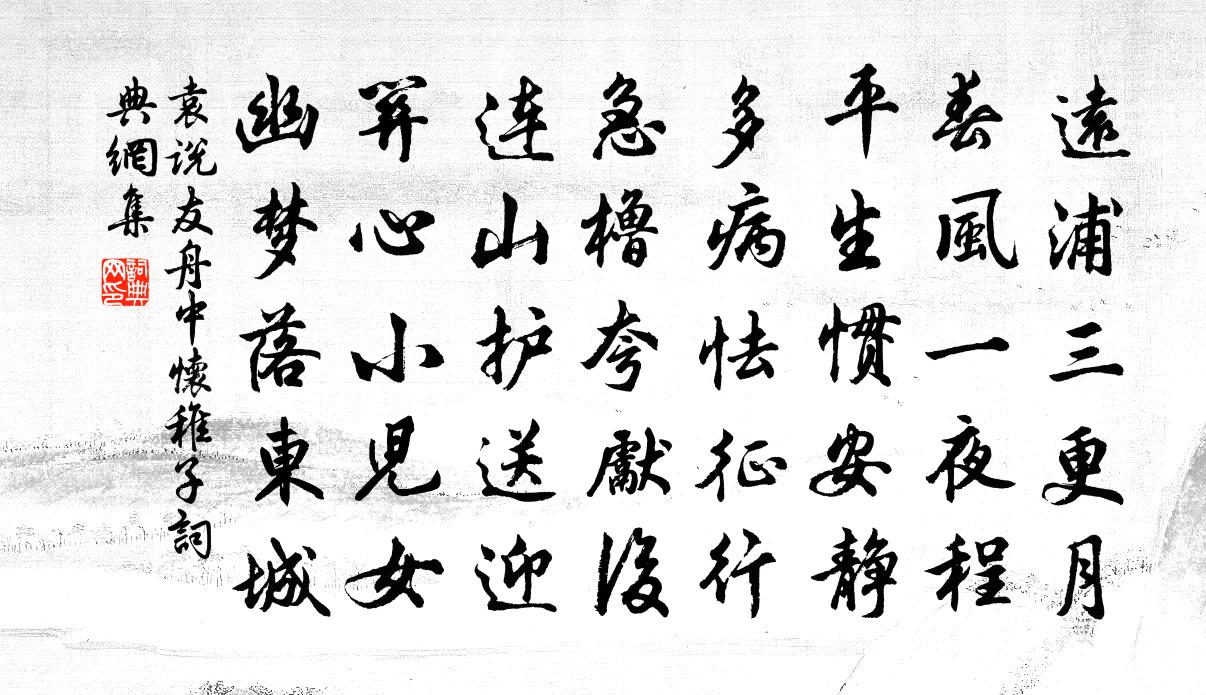 遠浦三更月
春風一夜程
平生惯安静
多病怯征行
急櫓夸獻後
連山护送迎
関心小児女
幽梦落東城
袁说友舟中懷稚子詞
典網集
詞典网印